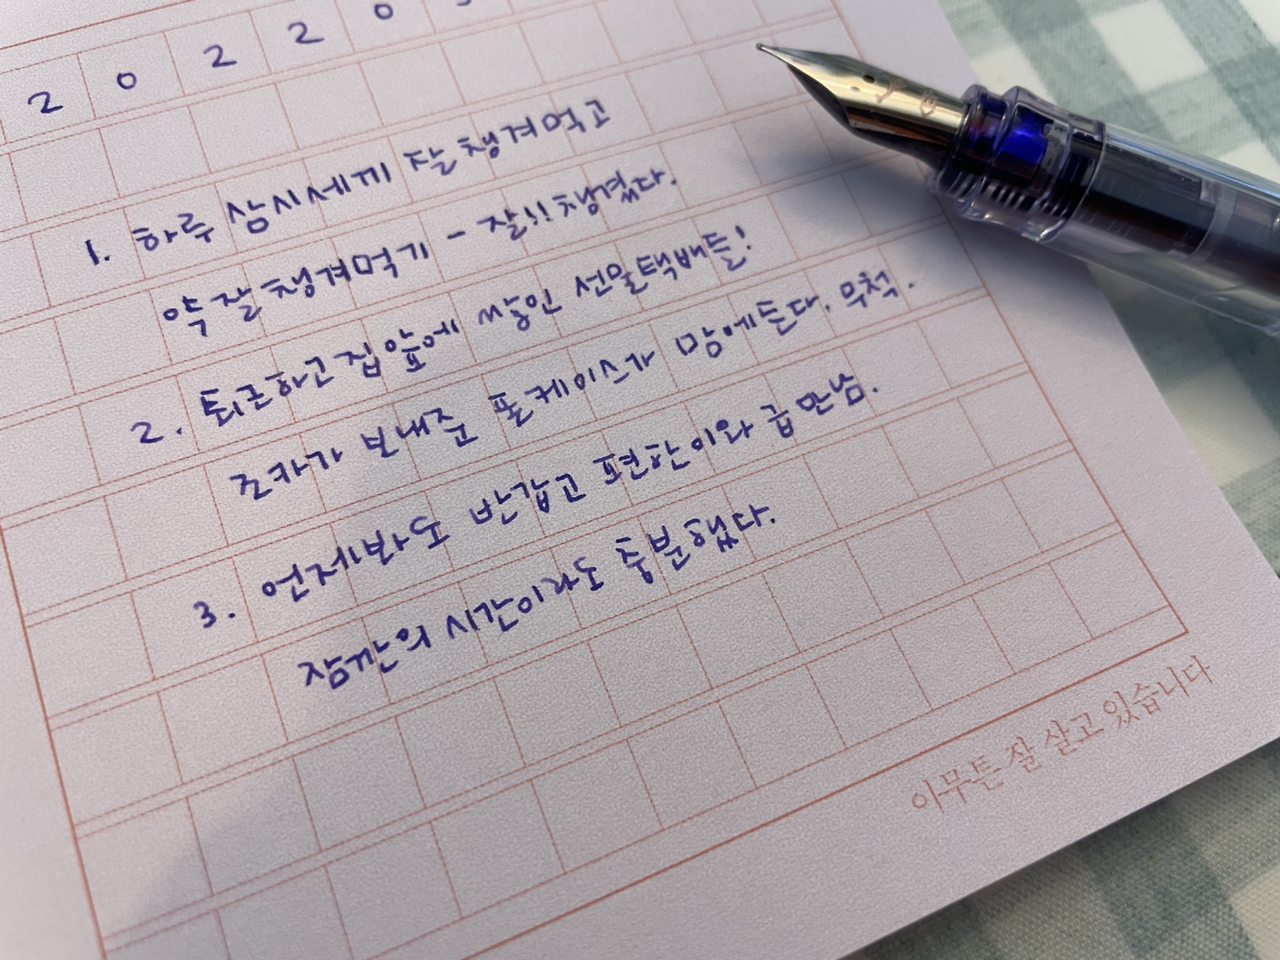 2 0 2 2 0
1. 하루 삼시세끼 잘 챙겨먹고
약 잘 챙겨먹기 - 잘!! 챙겼다.
2. 퇴근하고 집앞에 쌓인 선물택배들!
조카가 보내준 폰케이스가 맘에든다. 무척.
3. 언제봐도 반갑고 편한이와 급 만남.
잠깐의 시간이라도 충분했다.
아무튼 잘 살고 있습니다